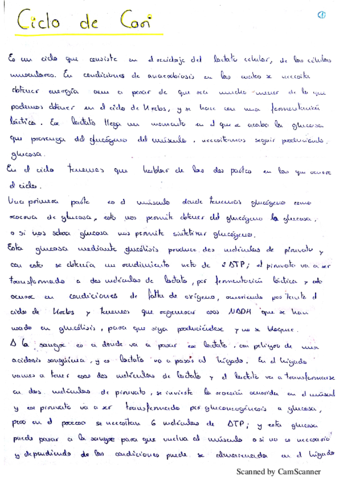 Ciclo de Cori
Es un ciclo que consiste en el reciclaje del lactato celular, de las células
musculares. En condiciones de anaerobiosis en las que se necesita
obtener energía aun a pesar de que sea mucho menor de lo que
podemos obtener en el ciclo de Krebs, y se hace con una fermentación
láctica. Ese lactato llega un momento en el que se acaba la glucosa
que provenga del glucógeno del músculo, necesitamos seguir produciendo
glucosa.
En el ciclo tenemos que hablar de las dos partes en las que ocurre
el ciclo.
Una primera parte es el músculo donde tenemos glucógeno como
reserva de glucosa, esto nos permite obtener del glucógeno la glucosa
o si nos sobra glucosa nos permite sintetizar glucógeno.
Esta glucosa mediante glucólisis produce dos moléculas de piruvato y
con esto se obtenía un rendimiento neto de 2 ATP; el piruvato va a ser
transformado a dos moléculas de lactato, por fermentación láctica y esto
ocurre en condiciones de falta de oxígeno, ocurriendo por tanto el
ciclo de Krebs y tenemos que regenerar esos NADH que se han
usado en glucólisis, para que siga produciéndose y no se bloquee.
A la sangre es a donde va a pasar ese lactato, con peligro de una
acidosis sanguínea, y ese lactato va a pasar al hígado. En el hígado
vamos a tener esas dos moléculas de lactato y el lactato va a transformarse
en dos moléculas de piruvato, se invierte la reacción ocurrida en el músculo
y ese piruvato va a ser transformado por gluconeogénesis a glucosa,
pero en el proceso se necesitan 6 moléculas de ATP; y esta glucosa
puede pasar a la sangre para que vuelva al músculo o si no es necesario
y dependiendo de las condiciones puede ser almacenada en el hígado
Scanned by CamScanner